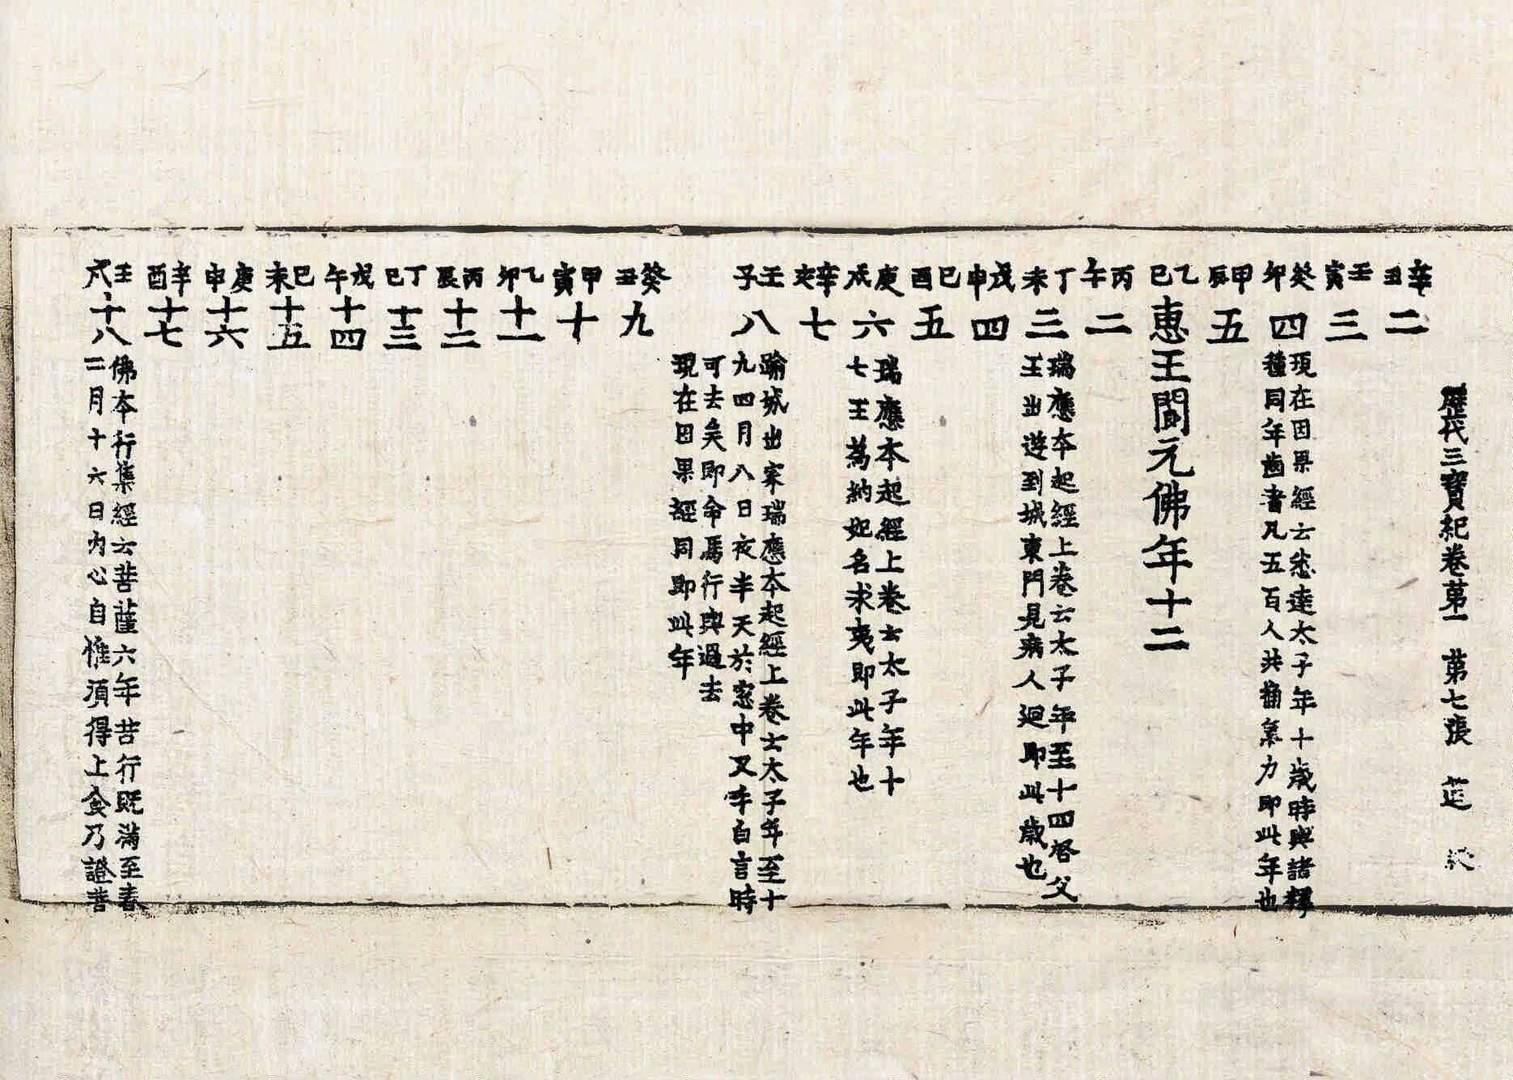 歷代三寶紀卷第一 第七張 莚
辛丑 二
壬寅 三
癸卯 四 現在因果經云悉達太子年十歲時與諸釋
種同年齒者凡五百人共捔氣力即此年也
甲辰 五
乙巳 惠王閬元佛年十二
丙午 二
丁未 三 瑞應本起經上卷云太子年至十四啓父
王出遊到城東門見病人迴即此歲也
戊申 四
己酉 五
庚戌 六 瑞應本起經上卷云太子年十
七王為納妃名求夷即此年也
辛亥 七
壬子 八 踰城出家瑞應本起經上卷云太子年至十
九四月八日夜半天於窓中叉手白言時
可去矣即命馬行與過去
現在因果經同即此年
癸丑 九
甲寅 十
乙卯 十一
丙辰 十二
丁巳 十三
戊午 十四
己未 十五
庚申 十六
辛酉 十七
壬戌 十八 佛本行集經云菩薩六年苦行既滿至春
二月十六日內心自惟須得上食乃證菩